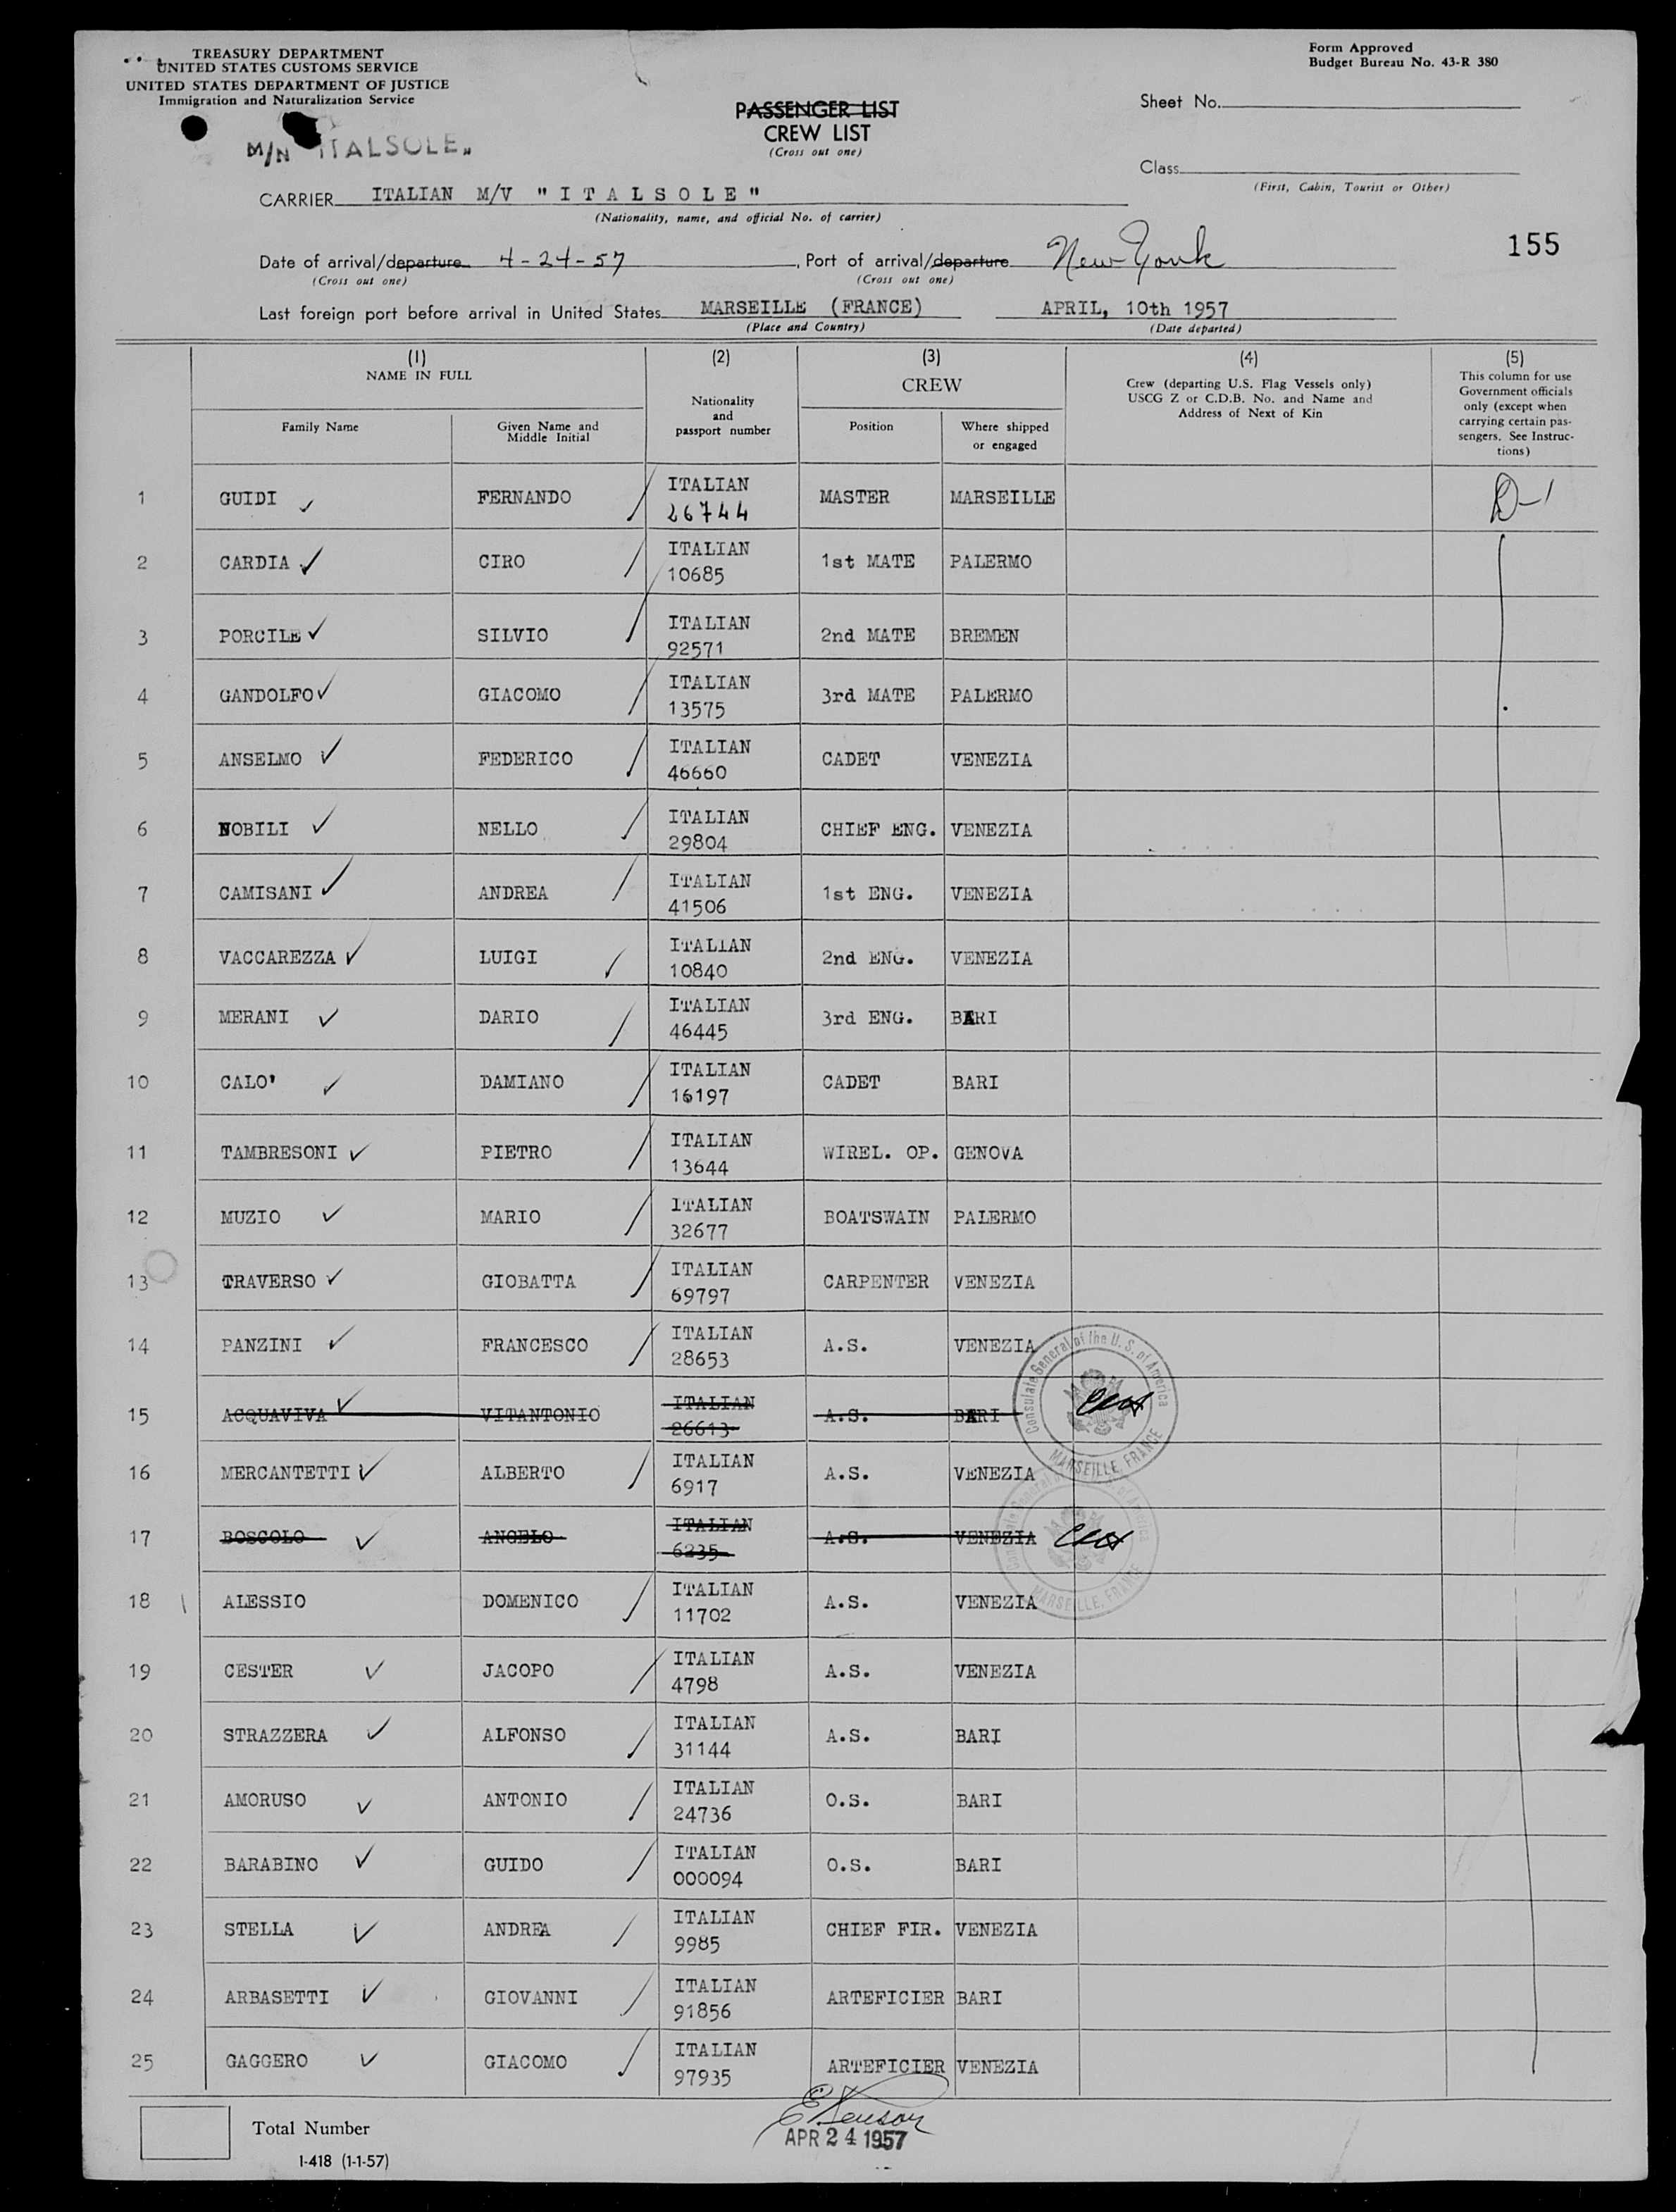 TREASURY DEPARTMENT
UNITED STATES CUSTOMS SERVICE
UNITED STATES DEPARTMENT OF JUSTICE
Immigration and Naturalization Service
Form Approved
Budget Bureau No. 43-R 380
M/N ITALSOLE
PASSENGER LIST
CREW LIST
(Cross out one)
Sheet No.
Class
(First, Cabin, Tourist or Other)
CARRIER ITALIAN M/V "ITALSOLE"
(Nationality, name, and official No. of carrier)
155
Date of arrival/departure 4-24-57, Port of arrival/departure New York
(Cross out one) (Cross out one)
Last foreign port before arrival in United States MARSEILLE (FRANCE) APRIL, 10th 1957
(Place and Country) (Date departed)
(1) NAME IN FULL
Family Name
Given Name and Middle Initial
(2) Nationality and passport number
(3) CREW
Position
Where shipped or engaged
(4) Crew (departing U.S. Flag Vessels only) USCG Z or C.D.B. No. and Name and Address of Next of Kin
(5) This column for use Government officials only (except when carrying certain passengers. See Instructions)
1 GUIDI FERNANDO ITALIAN 26744 MASTER MARSEILLE D-1
2 CARDIA CIRO ITALIAN 10685 1st MATE PALERMO
3 PORCILE SILVIO ITALIAN 92571 2nd MATE BREMEN
4 GANDOLFO GIACOMO ITALIAN 13575 3rd MATE PALERMO
5 ANSELMO FEDERICO ITALIAN 46660 CADET VENEZIA
6 NOBILI NELLO ITALIAN 29804 CHIEF ENG. VENEZIA
7 CAMISANI ANDREA ITALIAN 41506 1st ENG. VENEZIA
8 VACCAREZZA LUIGI ITALIAN 10840 2nd ENG. VENEZIA
9 MERANI DARIO ITALIAN 46445 3rd ENG. BARI
10 CALO' DAMIANO ITALIAN 16197 CADET BARI
11 TAMBRESONI PIETRO ITALIAN 13644 WIREL. OP. GENOVA
12 MUZIO MARIO ITALIAN 32677 BOATSWAIN PALERMO
13 TRAVERSO GIOBATTA ITALIAN 69797 CARPENTER VENEZIA
14 PANZINI FRANCESCO ITALIAN 28653 A.S. VENEZIA
15 ACQUAVIVA VITANTONIO ITALIAN 26613 A.S. BARI
Consulate General of the U. S. of America
MARSEILLE, FRANCE
16 MERCANTETTI ALBERTO ITALIAN 6917 A.S. VENEZIA
17 BOSCOLO ANGELO ITALIAN 6235 A.S. VENEZIA
Consulate General of the U. S. of America
MARSEILLE, FRANCE
18 ALESSIO DOMENICO ITALIAN 11702 A.S. VENEZIA
19 CESTER JACOPO ITALIAN 4798 A.S. VENEZIA
20 STRAZZERA ALFONSO ITALIAN 31144 A.S. BARI
21 AMORUSO ANTONIO ITALIAN 24736 O.S. BARI
22 BARABINO GUIDO ITALIAN 000094 O.S. BARI
23 STELLA ANDREA ITALIAN 9985 CHIEF FIR. VENEZIA
24 ARBASETTI GIOVANNI ITALIAN 91856 ARTEFICIER BARI
25 GAGGERO GIACOMO ITALIAN 97935 ARTEFICIER VENEZIA
Total Number
APR 24 1957
I-418 (1-1-57)